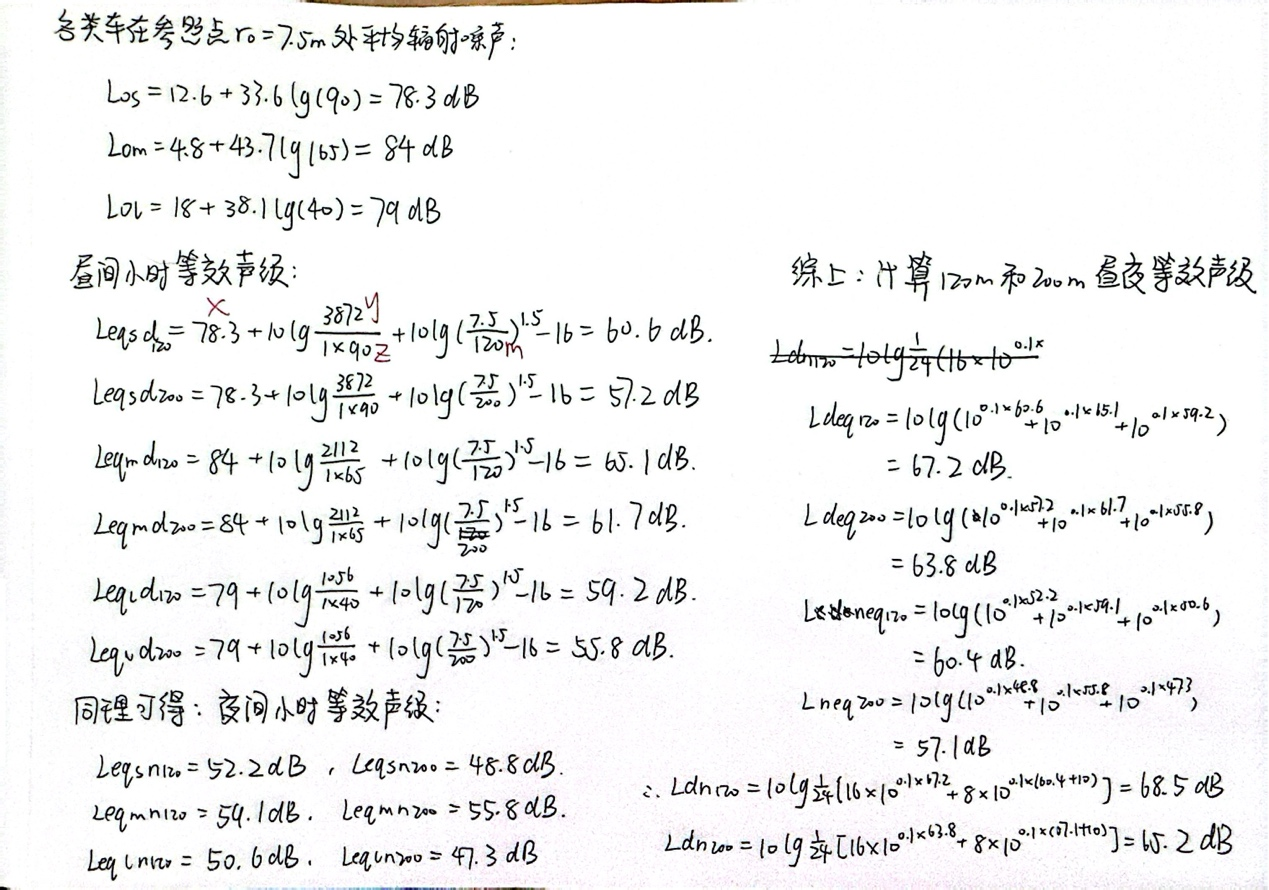 各类车在参照点r₀=7.5m处平均辐射噪声:
Los = 12.6 + 33.6 lg(90) = 78.3 dB
Lom = 4.8 + 43.7 lg(65) = 84 dB
Lol = 18 + 38.1 lg(40) = 79 dB
昼间小时等效声级:
x y
Leqsd₁₂₀ = 78.3 + 10lg 3872/(1×90) + 10lg(7.5/120)^1.5 - 16 = 60.6 dB.
z m
Leqsd₂₀₀ = 78.3 + 10lg 3872/(1×90) + 10lg(7.5/200)^1.5 - 16 = 57.2 dB
Leqmd₁₂₀ = 84 + 10lg 2112/(1×65) + 10lg(7.5/120)^1.5 - 16 = 65.1 dB.
Leqmd₂₀₀ = 84 + 10lg 2112/(1×65) + 10lg(7.5/200)^1.5 - 16 = 61.7 dB.
Leqld₁₂₀ = 79 + 10lg 1056/(1×40) + 10lg(7.5/120)^1.5 - 16 = 59.2 dB.
Leqld₂₀₀ = 79 + 10lg 1056/(1×40) + 10lg(7.5/200)^1.5 - 16 = 55.8 dB.
同理可得: 夜间小时等效声级:
Leqsn₁₂₀ = 52.2 dB , Leqsn₂₀₀ = 48.8 dB.
Leqmn₁₂₀ = 59.1 dB. Leqmn₂₀₀ = 55.8 dB.
Leqln₁₂₀ = 50.6 dB. Leqln₂₀₀ = 47.3 dB
综上: 计算120m和200m昼夜等效声级
Ldn₁₂₀ = 10lg 1/24 (16×10^0.1×
Ldeq₁₂₀ = 10lg(10^0.1×60.6 + 10^0.1×65.1 + 10^0.1×59.2)
= 67.2 dB.
Ldeq₂₀₀ = 10lg(10^0.1×57.2 + 10^0.1×61.7 + 10^0.1×55.8)
= 63.8 dB
Lneq₁₂₀ = 10lg(10^0.1×52.2 + 10^0.1×59.1 + 10^0.1×50.6)
= 60.4 dB.
Lneq₂₀₀ = 10lg(10^0.1×48.8 + 10^0.1×55.8 + 10^0.1×47.3)
= 57.1 dB
∴ Ldn₁₂₀ = 10lg 1/24 [16×10^0.1×67.2 + 8×10^0.1×(60.4+10)] = 68.5 dB
Ldn₂₀₀ = 10lg 1/24 [16×10^0.1×63.8 + 8×10^0.1×(57.1+10)] = 65.2 dB